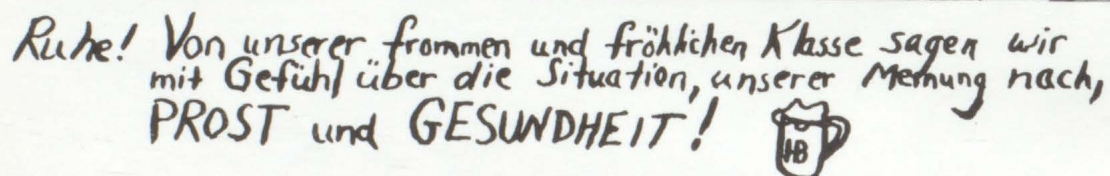 Ruhe! Von unserer frommen und fröhlichen Klasse sagen wir
mit Gefühl über die Situation, unserer Meinung nach,
PROST und GESUNDHEIT!
HB